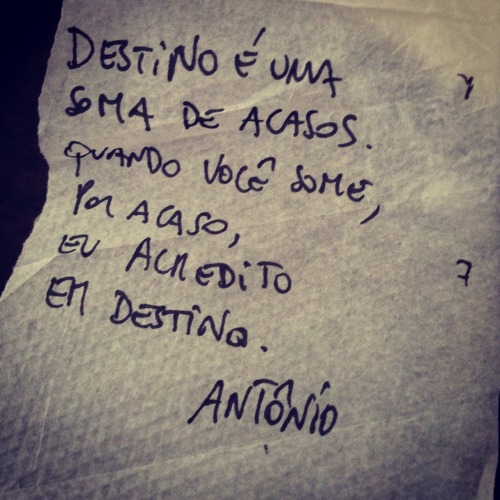 DESTINO É UMA
SOMA DE ACASOS.
QUANDO VOCÊ SOME,
POR ACASO,
EU ACREDITO
EM DESTINO.
ANTÔNIO